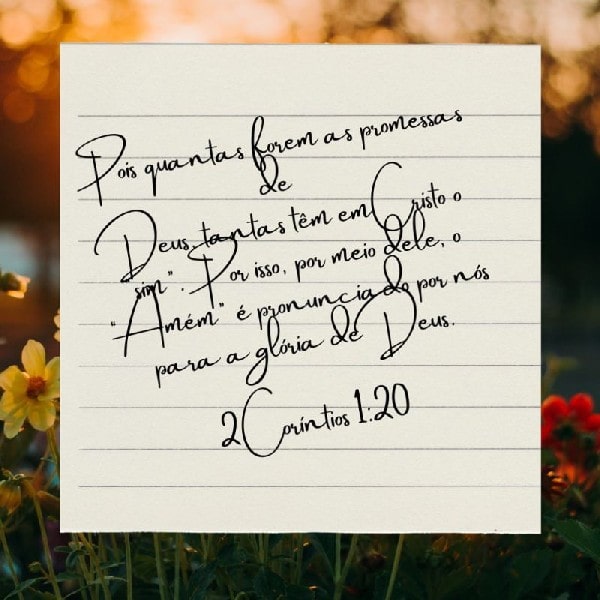 Pois quantas forem as promessas
de
Deus, tantas têm em Cristo o
sim". Por isso, por meio dele, o
"Amém" é pronunciado por nós
para a glória de Deus.
2 Coríntios 1:20